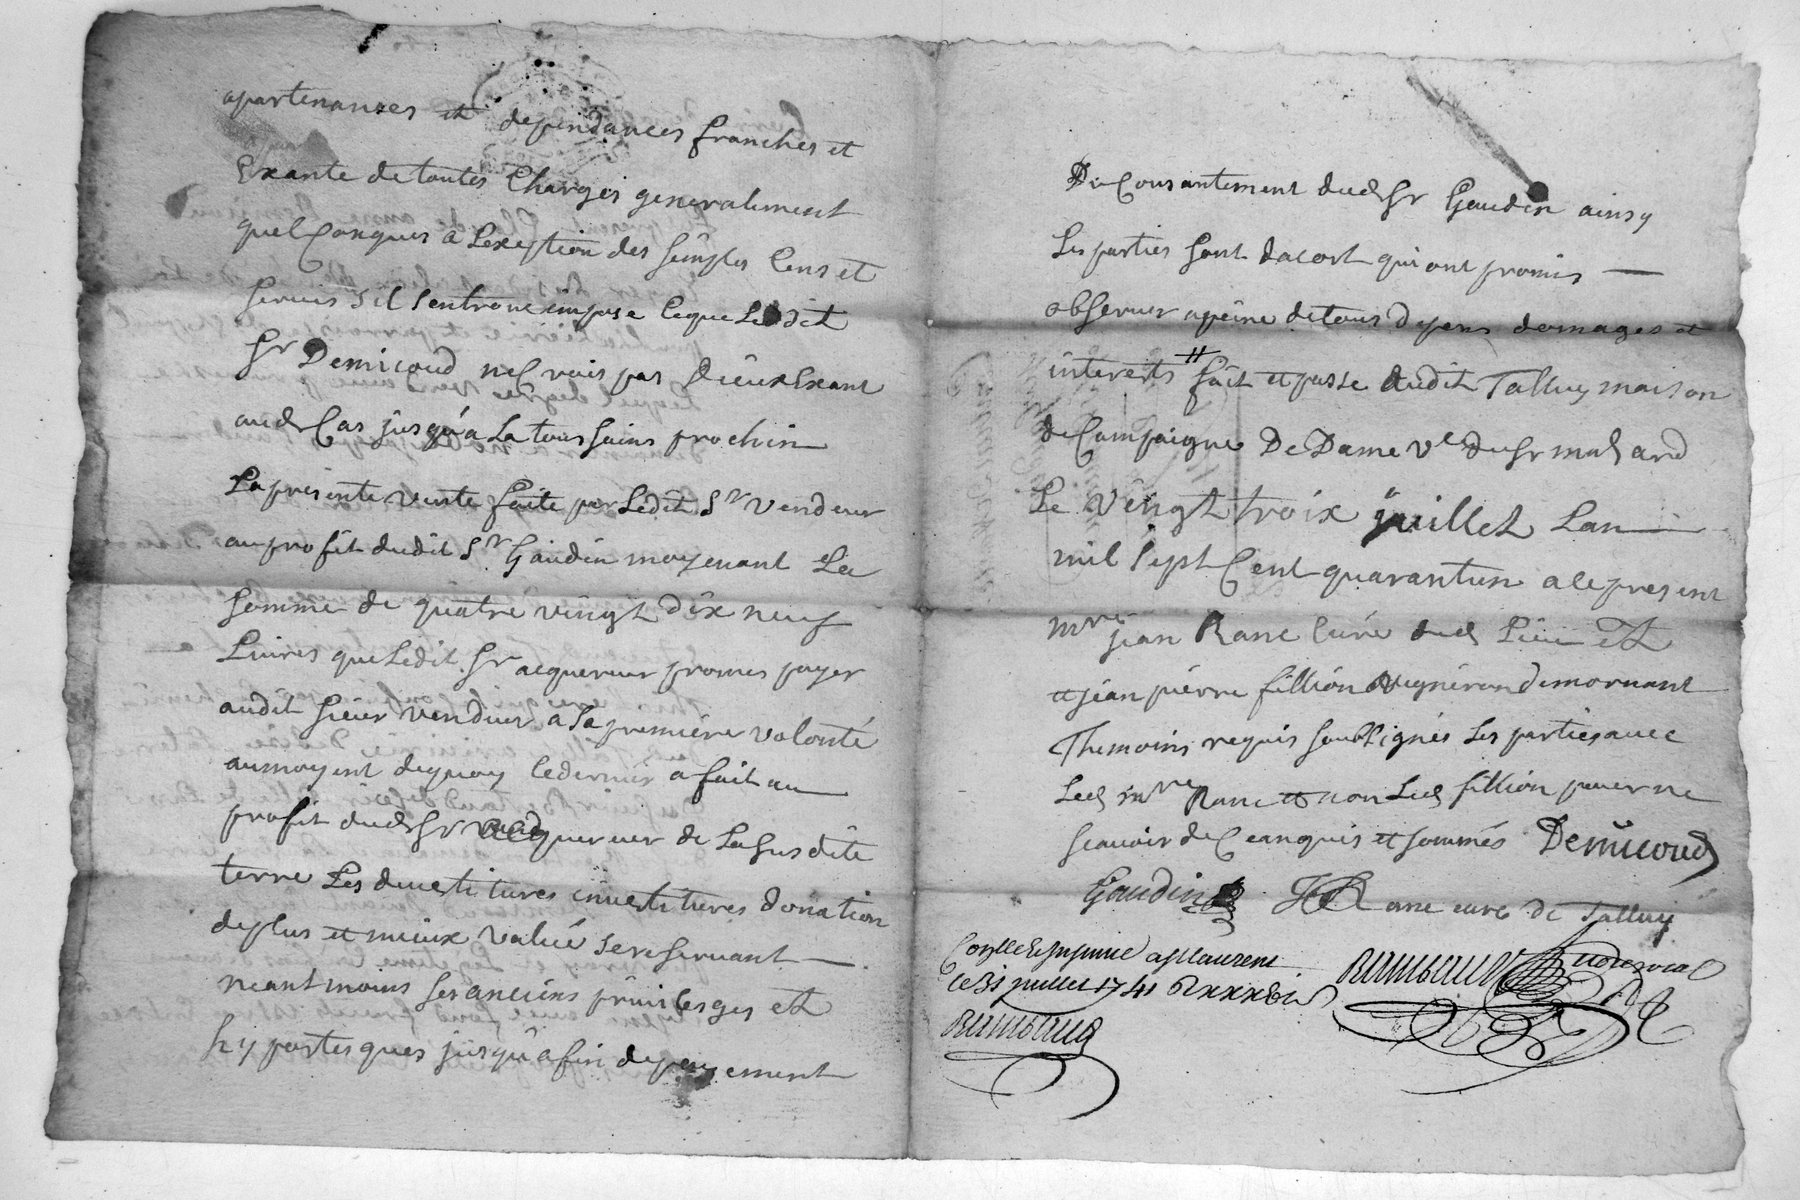 apartenances et dependances franches et
Exante de toutes Charges generalement
quelConques a Lexeption des simples Cens et
servis s'il sentrouve impose lequel Ledit
Sr Demicoud pas dieuxExant
audt Cas jusqu'a La toussains prochin
La presente vente faite par Ledit Sr Vendeur
au profit dudit Sr Gaudin moyenant La
somme de quatre vingt dix neuf
Livres que Ledit Sr acquereur promes payer
audit sieur vendeur a sa premiere volonté
aumoyent dequoy Ledernier a fait au
profit dudt Sr acquereur de La susdite
terre Les devestitures investitures donation
deplus et mieux value se reservant —
neantmoins ses anciens privileges et
hypoteques jusqu'a fin de payement
Du Consantement dudt Sr Gaudin ainsy
Les parties sont dacort qui ont promis —
observer apeine detous depens domages et
interests fait et passe dudit Talluy maison
deCampaigne De Dame ve du Sr
Le vingt troix juillet Lan —
mil sept Cent quarantun a le present
mre jean Ranc Curé dudt Lieu et
et jean pierre fillion vigneron demornant
Themoins requis soubsignés Les parties avec
Ledt mre Ranc et non Ledt fillion pour ne
scavoir deCeanquis et sommés Demicoud
Gaudin Ranc curé de Talluy
Conlle
le 31 juillet 1741